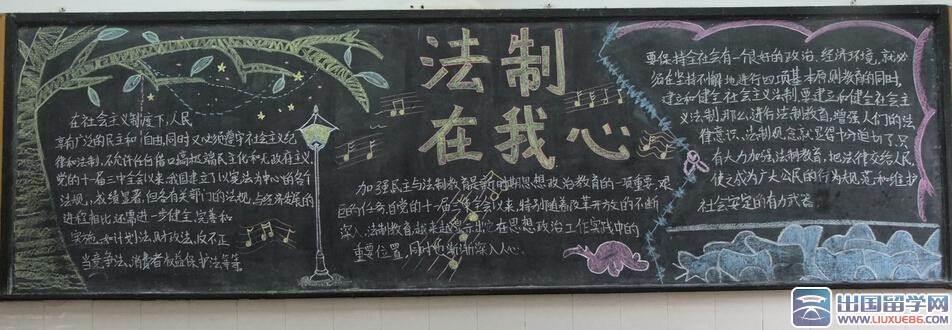 法制
在我心
在社会主义制度下,人民
享有广泛的民主和自由,同时又必须遵守社会主义纪
律和法制,不允许任何借口搞极端民主化和无政府主义.
党的十一届三中全会以来,我国建立了以宪法为中心的各个
法规,成绩显著,但各有关部门的法规,与经济发展的
进程相比还需进一步健全,完善和
实施.如计划法,财政法,反不正
当竞争法、消费者权益保护法等等.
加强民主与法制教育是新时期思想政治教育的一项重要、艰
巨的任务,自党的十一届三中全会以来,特别随着改革开放的不断
深入,法制教育越来越显示出它在思想政治工作实践中的
重要位置,同时也渐渐深入人心.
要保持全社会有一个很好的政治、经济环境,就必
须在坚持不懈地进行四项基本原则教育的同时,
建立和健全社会主义法制.要建立和健全社会主
义法制,那么,进行法制教育,增强人们的法
律意识、法制观念就显得十分迫切了.只
有大力加强法制教育,把法律交给人民,
使之成为广大公民的行为规范和维护
社会安定的有力武器.
出国留学网
WWW.LIUXUE86.COM